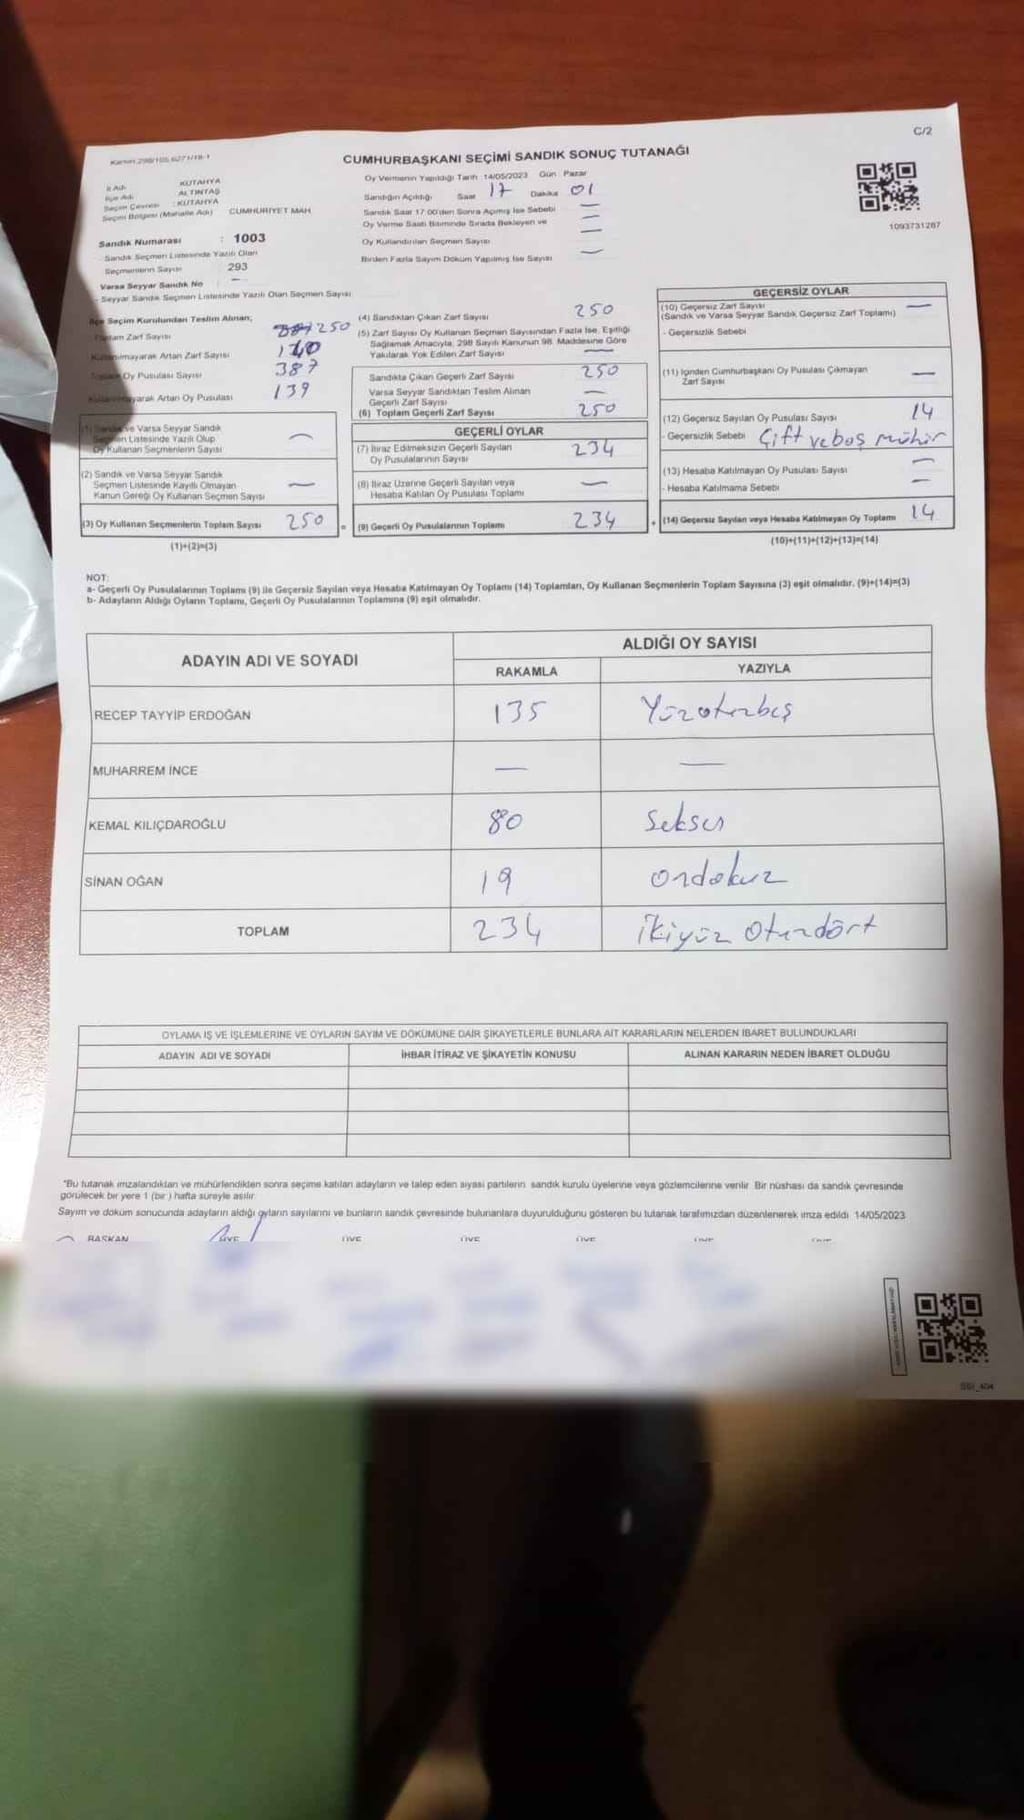 C/2
CUMHURBAŞKANI SEÇİMİ SANDIK SONUÇ TUTANAĞI
1093731287
İl Adı KÜTAHYA
İlçe Adı ALTINTAŞ
Seçim Çevresi : KÜTAHYA
Seçim Bölgesi (Mahalle Adı) CUMHURİYET MAH.
Sandık Numarası : 1003
Sandık Seçmen Listesinde Yazılı Olan
Seçmenlerin Sayısı 293
Varsa Seyyar Sandık No —
- Seyyar Sandık Seçmen Listesinde Yazılı Olan Seçmen Sayısı
Oy Vermenin Yapıldığı Tarih 14/05/2023 Gün Pazar
Sandığın Açıldığı Saat 17 Dakika 01
Sandık Saat 17:00'den Sonra Açılmış İse Sebebi —
Oy Verme Saati Bitiminde Sırada Bekleyen ve —
Oy Kullandırılan Seçmen Sayısı —
Birden Fazla Sayım Döküm Yapılmış İse Sayısı —
İlçe Seçim Kurulundan Teslim Alınan;
Toplam Zarf Sayısı 250
Kullanılmayarak Artan Zarf Sayısı
Toplam Oy Pusulası Sayısı 387
Kullanılmayarak Artan Oy Pusulası 139
(1) Sandık ve Varsa Seyyar Sandık
Seçmen Listesinde Yazılı Olup
Oy Kullanan Seçmenlerin Sayısı —
(2) Sandık ve Varsa Seyyar Sandık
Seçmen Listesinde Kayıtlı Olmayan
Kanun Gereği Oy Kullanan Seçmen Sayısı —
(3) Oy Kullanan Seçmenlerin Toplam Sayısı 250 =
(1)+(2)=(3)
(4) Sandıktan Çıkan Zarf Sayısı 250
(5) Zarf Sayısı Oy Kullanan Seçmen Sayısından Fazla İse, Eşitliği
Sağlamak Amacıyla, 298 Sayılı Kanunun 98. Maddesine Göre
Yakılarak Yok Edilen Zarf Sayısı —
Sandıkta Çıkan Geçerli Zarf Sayısı 250
Varsa Seyyar Sandıktan Teslim Alınan
Geçerli Zarf Sayısı —
(6) Toplam Geçerli Zarf Sayısı 250
GEÇERLİ OYLAR
(7) İtiraz Edilmeksizin Geçerli Sayılan
Oy Pusulalarının Sayısı 234
(8) İtiraz Üzerine Geçerli Sayılan veya
Hesaba Katılan Oy Pusulası Toplamı —
(9) Geçerli Oy Pusulalarının Toplamı 234 +
GEÇERSİZ OYLAR
(10) Geçersiz Zarf Sayısı —
(Sandık ve Varsa Seyyar Sandık Geçersiz Zarf Toplamı)
- Geçersizlik Sebebi
(11) İçinden Cumhurbaşkanı Oy Pusulası Çıkmayan
Zarf Sayısı —
(12) Geçersiz Sayılan Oy Pusulası Sayısı 14
- Geçersizlik Sebebi Çift ve boş mühür
(13) Hesaba Katılmayan Oy Pusulası Sayısı —
- Hesaba Katılmama Sebebi —
(14) Geçersiz Sayılan veya Hesaba Katılmayan Oy Toplamı 14
(10)+(11)+(12)+(13)=(14)
NOT:
a- Geçerli Oy Pusulalarının Toplamı (9) ile Geçersiz Sayılan veya Hesaba Katılmayan Oy Toplamı (14) Toplamları, Oy Kullanan Seçmenlerin Toplam Sayısına (3) eşit olmalıdır. (9)+(14)=(3)
b- Adayların Aldığı Oyların Toplamı, Geçerli Oy Pusulalarının Toplamına (9) eşit olmalıdır.
ADAYIN ADI VE SOYADI ALDIĞI OY SAYISI
RAKAMLA YAZIYLA
RECEP TAYYİP ERDOĞAN 135 Yüzotuzbeş
MUHARREM İNCE — —
KEMAL KILIÇDAROĞLU 80 Seksen
SİNAN OĞAN 19 ondokuz
TOPLAM 234 İkiyüz Otuzdört
OYLAMA İŞ VE İŞLEMLERİNE VE OYLARIN SAYIM VE DÖKÜMÜNE DAİR ŞİKAYETLERLE BUNLARA AİT KARARLARIN NELERDEN İBARET BULUNDUKLARI
ADAYIN ADI VE SOYADI İHBAR İTİRAZ VE ŞİKAYETİN KONUSU ALINAN KARARIN NEDEN İBARET OLDUĞU
"Bu tutanak imzalandıktan ve mühürlendikten sonra seçime katılan adayların ve talep eden siyasi partilerin sandık kurulu üyelerine veya gözlemcilerine verilir. Bir nüshası da sandık çevresinde
görülecek bir yere 1 (bir) hafta süreyle asılır.
Sayım ve döküm sonucunda adayların aldığı oyların sayılarını ve bunların sandık çevresinde bulunanlara duyurulduğunu gösteren bu tutanak tarafımızdan düzenlenerek imza edildi. 14/05/2023
BAŞKAN ÜYE ÜYE ÜYE ÜYE ÜYE ÜYE